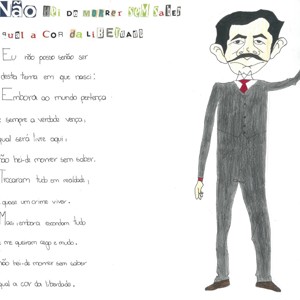 Não hei de morrer sem saber
qual a cor da liberdade
Eu não posso senão ser
desta terra em que nasci:
Embora ao mundo pertença
e sempre a verdade vença,
qual será livre aqui,
não hei-de morrer sem saber.
Trocaram tudo em maldade,
quase um crime viver.
Mas, embora escondam tudo
e me queiram cego e mudo,
não hei-de morrer sem saber
qual a cor da liberdade.